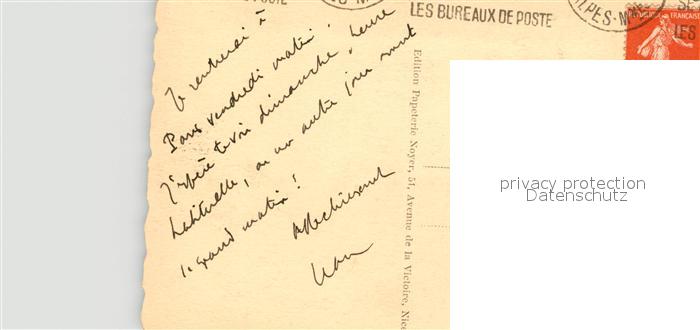 LES BUREAUX DE POSTE
ALPES-M
REPUBLIQUE FRANÇAISE
LES
Je rentrerai à
Paris vendredi matin.
J'espère te voir dimanche, heure
habituelle, ou un autre jour avant
le grand matin!
Affectueusement
Edition Papeterie Noyer, 51, Avenue de la Victoire, Nice
privacy protection
Datenschutz